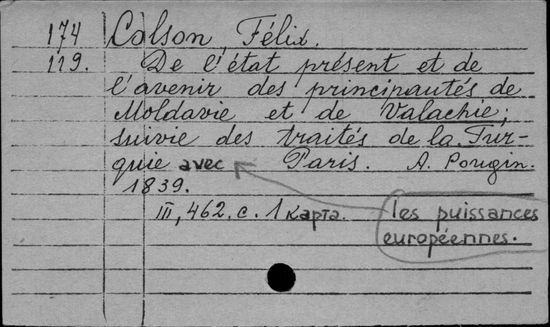 174 Colson, Félix.
119. De l'état présent et de
l'avenir des principautés de
Moldavie et de Valachie;
suivie des traités de la Tur-
quie avec Paris. A. Pougin.
1839.
III, 462. c. 1 карта. les puissances
européennes.